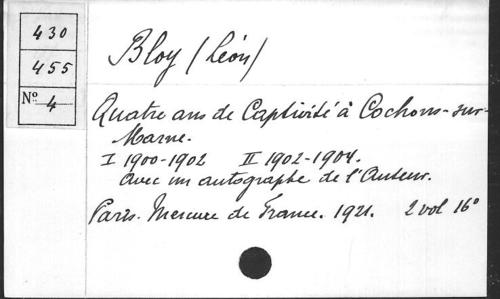 430
455
Nº 4
Bloy (Léon)
Quatre ans de Captivité à Cochons-sur-
Marne.
I 1900-1902 II 1902-1904.
avec un autographe de l'Auteur.
Paris. Mercure de France. 1921. 2 vol 16º